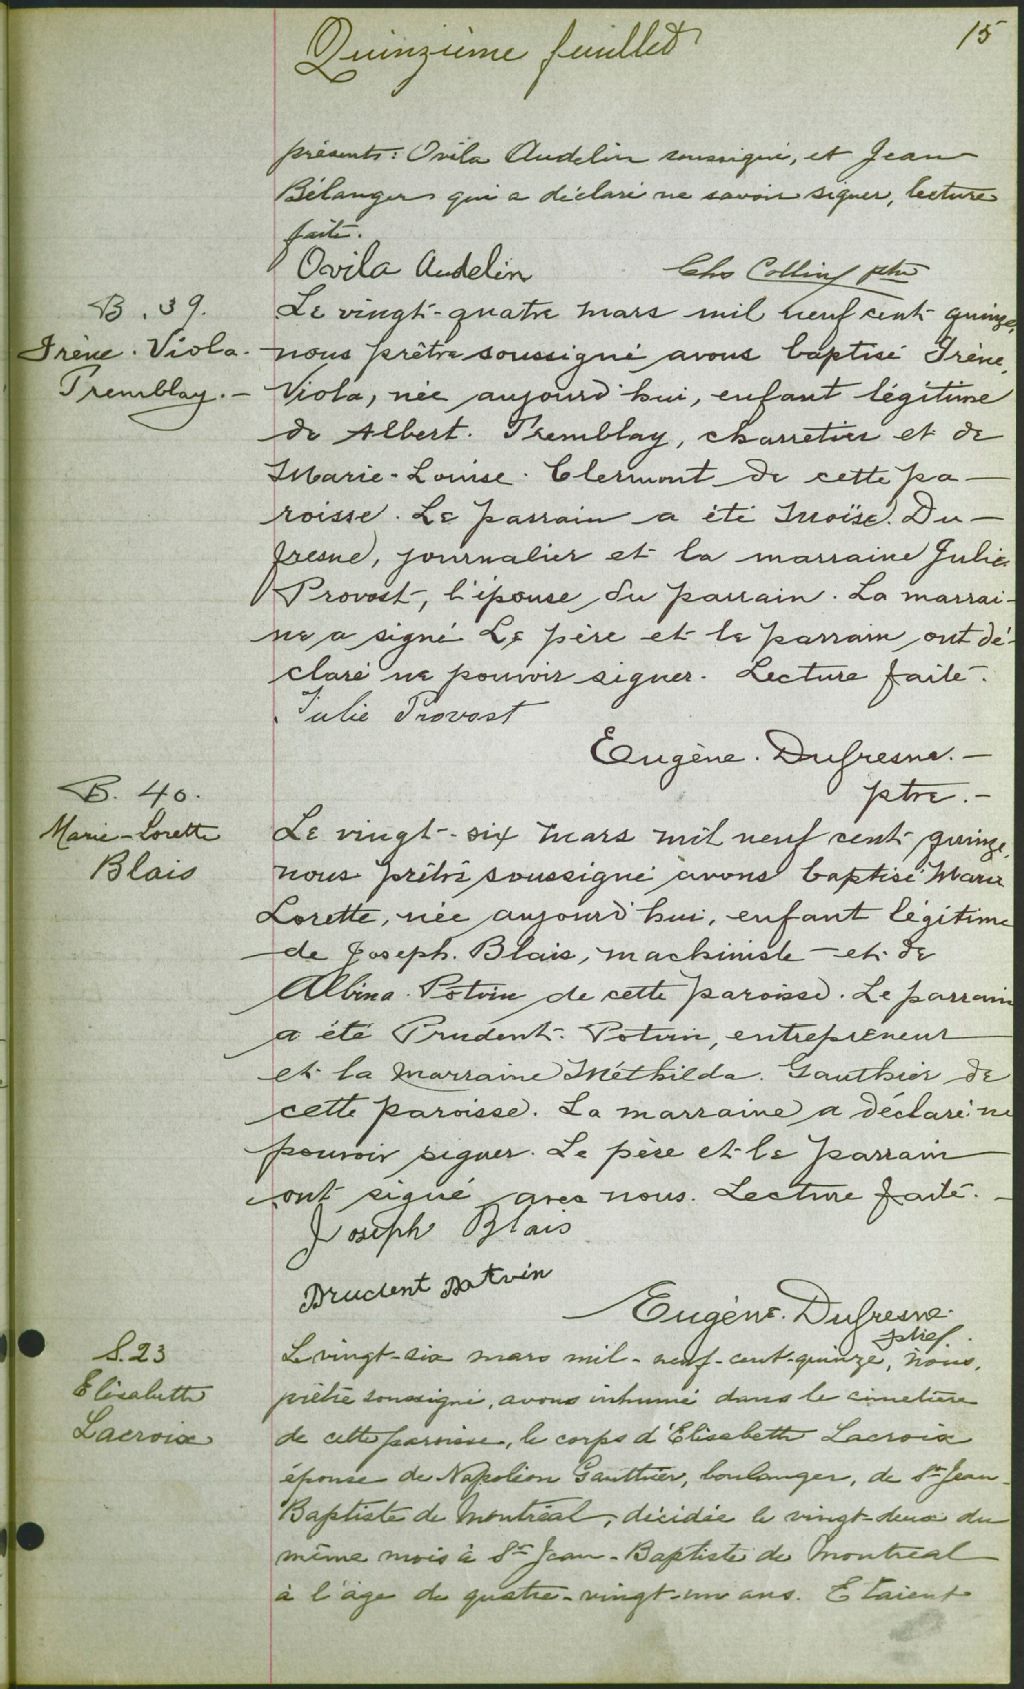 Quinzième feuillet
15
présents: Ovila Audelin soussigné, et Jean
Bélanger qui a déclaré ne savoir signer, lecture
faite.
Ovila Audelin
Chs Collin ptre
B. 39.
Irène. Viola.
Tremblay. -
Le vingt-quatre mars mil neuf cent quinze,
nous prêtre soussigné avons baptisé Irène,
Viola, née aujourd'hui, enfant légitime
de Albert. Tremblay, charretier et de
Marie-Louise. Clermont de cette pa-
roisse. Le parrain a été Moïse. Du-
fresne, journalier et la marraine Julie
Provost, l'épouse du parrain. La marrai-
ne a signé Le père et le parrain ont dé-
claré ne pouvoir signer. Lecture faite.
Julie Provost
Eugène. Dufresne. -
ptre. -
B. 40.
Marie-Lorette
Blais
Le vingt-six mars mil neuf cent quinze,
nous prêtre soussigné avons baptisé Marie
Lorette, née aujourd'hui, enfant légitime
de Joseph. Blais, machiniste et de
Albina. Potvin de cette paroisse. Le parrain
a été Prudent. Potvin, entrepreneur
et la marraine Méthilda. Gauthier de
cette paroisse. La marraine a déclaré ne
pouvoir signer. Le père et le parrain
ont signé avec nous. Lecture faite. -
Joseph Blais
Prudent Potvin
Eugène. Dufresne.
ptre.
S. 23
Elisabeth
Lacroix
Le vingt-six mars mil-neuf-cent-quinze, nous,
prêtre soussigné, avons inhumé dans le cimetière
de cette paroisse, le corps d'Elisabeth Lacroix
épouse de Napoléon Gauthier, boulanger, de St Jean-
Baptiste de Montréal, décédée le vingt-deux du
même mois à St Jean-Baptiste de Montreal
à l'âge de quatre-vingt-un ans. Etaient